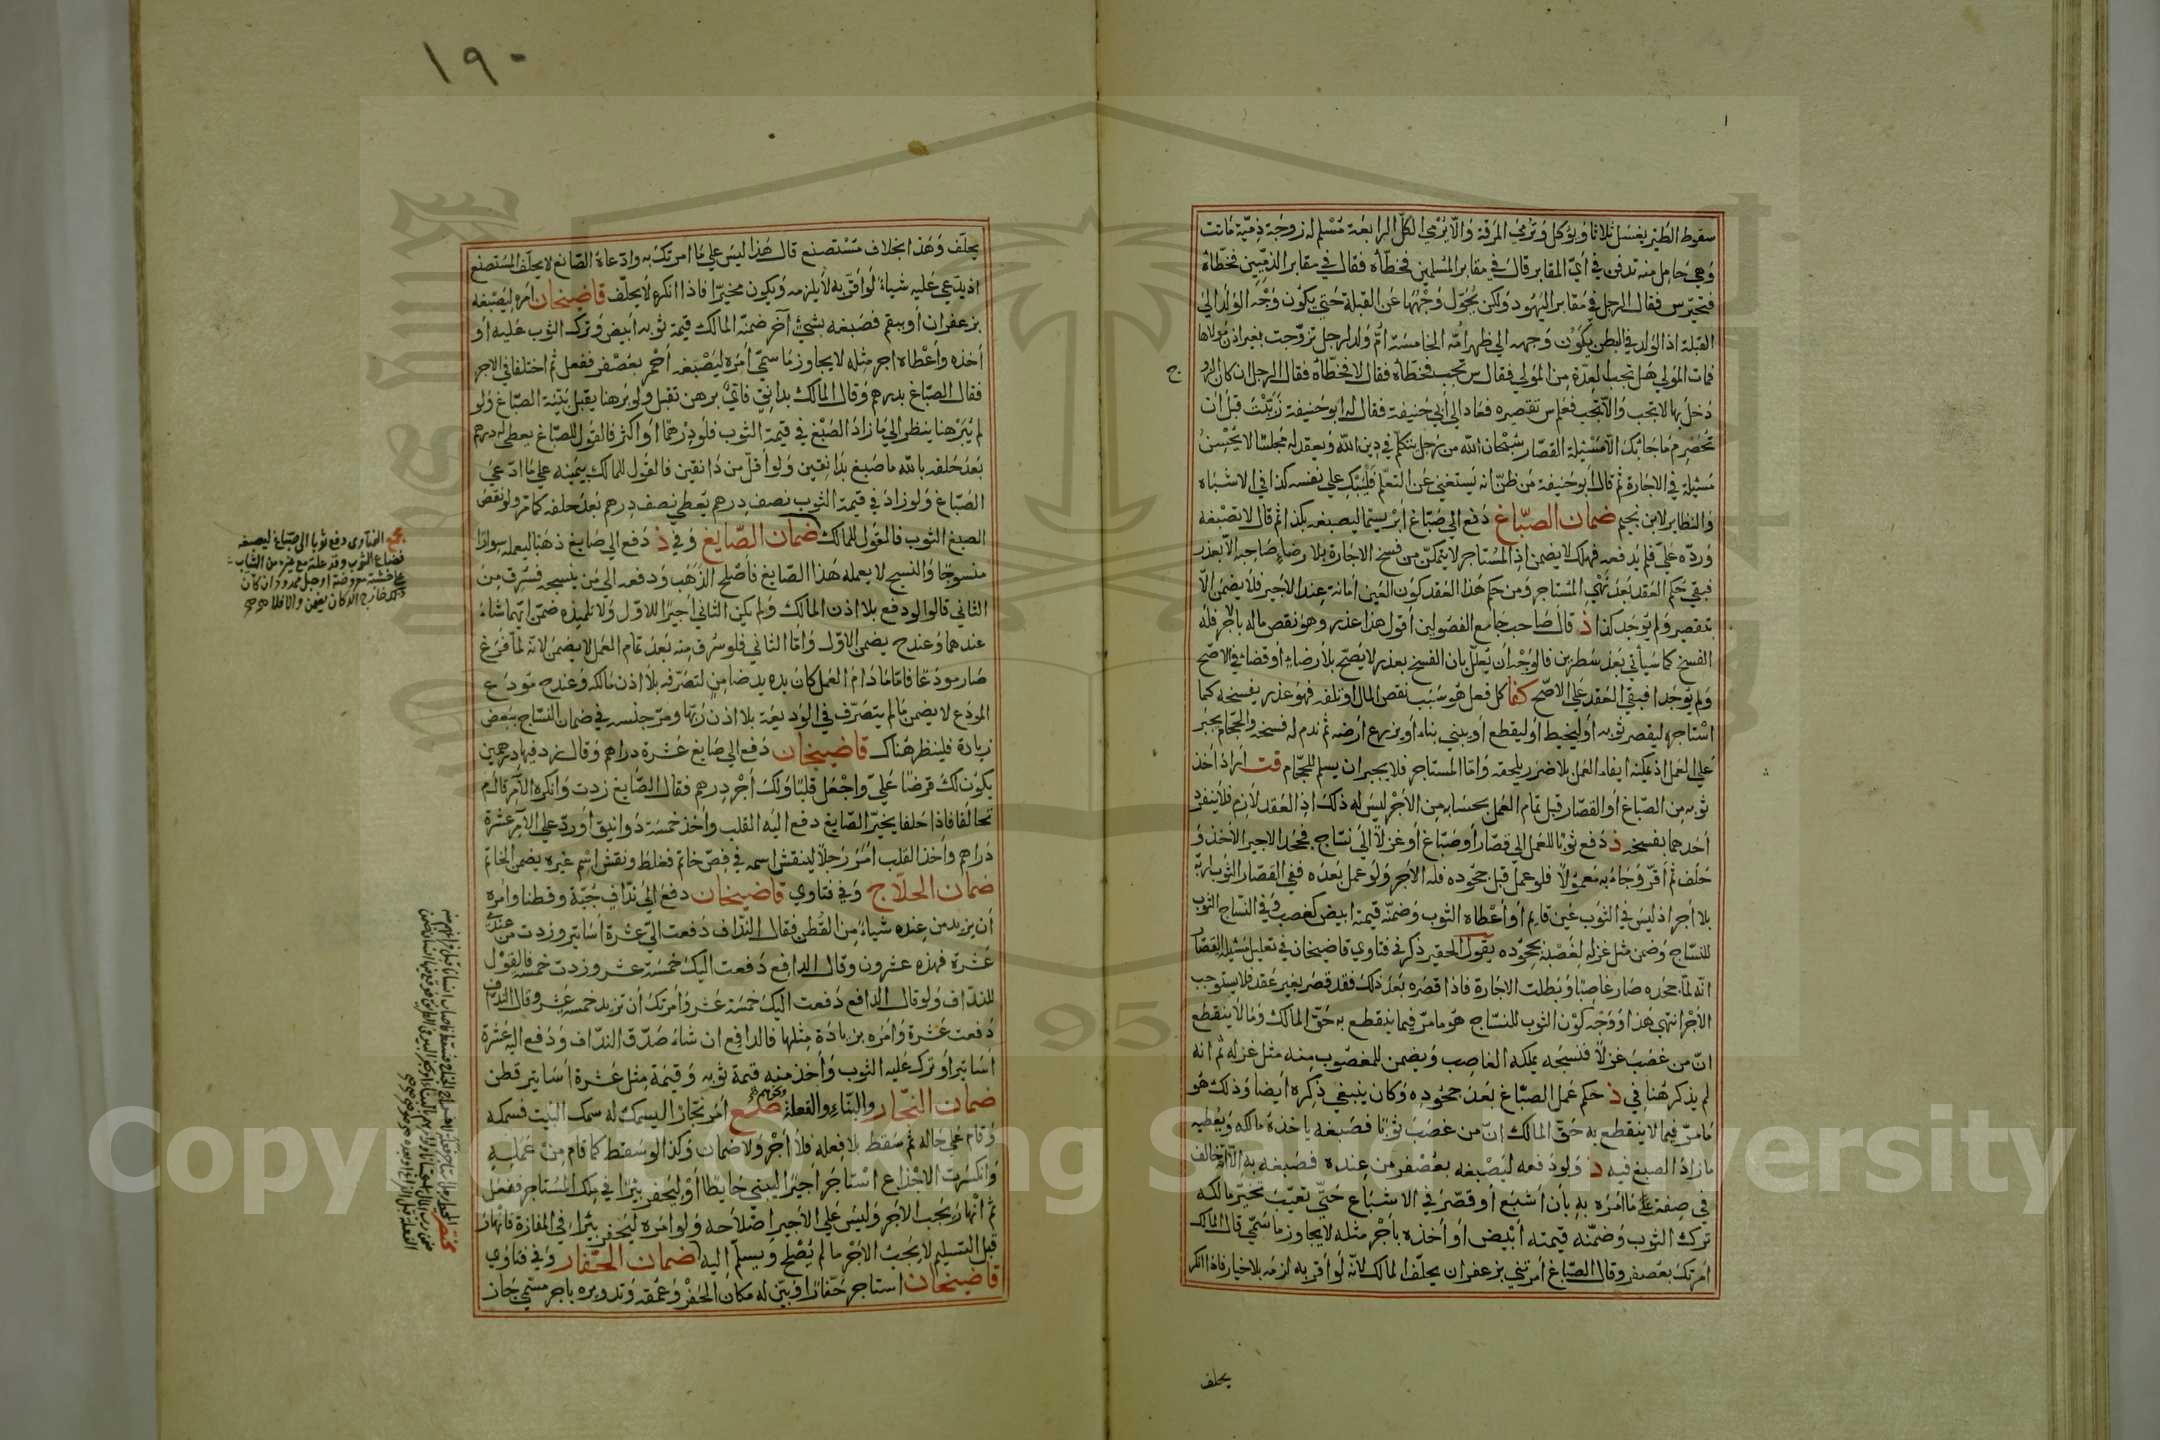 سقوط الطير يغسل ثلاثا ويؤكل وترمى المرقة والا يرمى الكل الرابعة مسلم له زوجة ذمية ماتت
وهي حامل منه تدفن في أي المقابر قال في مقابر المسلمين فخطأه فقال في مقابر الذميين فخطأه
فتحير س فقال الرجل في مقابر اليهود ولكن يحول وجهها عن القبلة حتى يكون وجه الولد الى
القبلة اذ الولد في البطن يكون وجهه الى ظهر أمه الخامسة ام ولد لرجل تزوجت بغير اذن مولاها
فمات المولى هل تجب العدة من المولى فقال س تجب فخطأه فقال لا فخطأه فقال الرجل ان كان الزوج
دخل بها لا تجب والا تجب فعلم س تقصيره فعاد الى أبي حنيفة فقال له ابو حنيفة زببت قبل أن
تحصرم ما جابك الا مسئلة القصار سبحان الله من رجل يتكلم في دين الله ويعقد له مجلسا لا يحسن
مسئلة في الاجارة ثم قال أبو حنيفة من ظن انه يستغني عن التعلم فليبك على نفسه كذا في الاشباه
والنظاير لابن نجيم ضمان الصباغ دفع الى صباغ ابريسما ليصبغه بكذا ثم قال لا تصبغه
ورده علي فلم يدفعه فهلك لا يضمن اذ المستاجر لا يتمكن من فسخ الاجارة بلا رضاء صاحبه الا بعذر
فبقي حكم العقد بعد نهي المستاجر ومن حكم هذا العقد كون العين أمانة عند الأجير فلا يضمن الا
بتقصير ولم يوجد كذا ذ قال صاحب جامع الفصولين أقول هذا عذر وهو نقص ماله بالأجر فله
الفسخ كما سيأتي بعد سطرين فالوجه أن يعلل بان الفسخ بعذر لا يصح بلا رضاء أو قضاء في الاصح
ولم يوجدا فبقي العقد على الاصح كل فعل هو سبب نقص المال او تلفه فهو عذر يفسخه كما
استاجره ليقصر ثوبه أو ليخيط أو ليقطع أو يبني بناء أو يزرع أرضه ثم ندم له فسخه والحجام يجبر
على العمل اذ يمكنه ايفاء العمل بلا ضرر يلحقه واما المستاجر فلا يجبر ان يسلم للحجام قت أراد أخذ
ثوبه من الصباغ أو القصار قبل تمام العمل بحسابه من الأجر ليس له ذلك اذ العقد لازم فلا ينفرد
أحدهما بفسخه ذ دفع ثوبا للعمل الى قصار أو صباغ أو غزلا الى نساج فجحد الاجير الأخذ و
حلف ثم أقر وجاء به معمولا فلو عمل قبل جحوده فله الأجر ولو عمل بعده ففي القصار الثوب لربه
بلا أجر اذ ليس في الثوب عين قايم أو أعطاه الثوب وضمنه قيمة ابيض كغصب وفي النساج الثوب
للنساج وضمن مثل غزله لغصبه بجحوده يقول الحقير ذكر في فتاوي قاضيخان في تعليل مسئلة القصار
انه لما جحده صار غاصبا وبطلت الاجارة فاذا قصره بعد ذلك فقد قصر بغير عقد فلا يستوجب
الأجر انتهى هذا ووجه كون الثوب للنساج هو ما مر فيما ينقطع به حق المالك وما لا ينقطع
ان من غصب غزلا فنسجه يملكه الغاصب ويضمن للمغصوب منه مثل غزله ثم انه
لم يذكر هنا في ذ حكم عمل الصباغ بعد جحوده وكان ينبغي ذكره أيضا وذلك هو
ما مر فيما لا ينقطع به حق المالك ان من غصب ثوبا فصبغه ياخذه مالكه ويعطيه
ما زاد الصبغ فيه ذ ولو دفعه ليصبغه بعصفر من عنده فصبغه به الا انه خالف
في صفة ما امره به بأن أشبع أو قصر في الاشباع حتى تعيب تخير مالكه
ترك الثوب وضمنه قيمته أبيض أو أخذه بأجر مثله لا يجاوز ما سمي قال المالك
امرتك بعصفر وقال الصباغ امرتني بزعفران يحلف المالك لانه لو أقر به لزمه بلا خيار فاذا انكر
يحلف
١٩٠
يحلف وهذا بخلاف مستصنع قال هذا ليس على ما امرتك به وادعاه الصانع لا يحلف المستصنع
اذ يدعي عليه شياء لو أقر به لا يلزمه ويكون مخيرا فاذا انكره لا يحلف قاضيخان أمره ليصبغه
بزعفران أو ببقم فصبغه بشيء آخر ضمنه المالك قيمة ثوبه أبيض وترك الثوب عليه أو
أخذه وأعطاه اجر مثله لا يجاوز ما سمي أمره ليصبغه أحمر بعصفر ففعل ثم اختلفا في الاجر
فقال الصباغ بدرهم وقال المالك بدانق فأي برهن تقبل ولو برهنا يقبل بينة الصباغ ولو
لم يبرهنا ينظر الى ما زاد الصبغ في قيمة الثوب فلو درهما أو أكثر فالقول للصباغ يعطى له درهم
بعد حلفه بالله ما صبغ بدانقين ولو أقل من دانقين فالقول للمالك بيمينه على ما ادعى
الصباغ ولو زاد في قيمة الثوب نصف درهم يعطي نصف درهم بعد حلفه كما مر ولو نقص
الصبغ الثوب فالقول للمالك ضمان الصايغ وفي ذ دفع الى صايغ ذهبا ليعمله سوارا
منسوجا والنسج لا يعمله هذا الصايغ فأصلح الذهب ودفعه الى من ينسجه فسرق من
الثاني قالوا لو دفع بلا اذن المالك ولم يكن الثاني أجيرا للاول ولا تلميذه ضمن ايهما شاء
عندهما وعند ح يضمن الاول وأما الثاني فلو سرق منه بعد تمام العمل لا يضمن لانه لما فرغ
صار مودعا فاما ما دام العمل كان يده يد ضامن لتصرفه بلا اذن مالكه وعند ح مودع
المودع لا يضمن ما لم يتصرف في الوديعة بلا اذن ربها ومر جنسه في ضمان النساج ببعض
زيادة فلينظر هناك قاضيخان دفع الى صايغ عشرة دراهم وقال زد فيها درهمين
يكون لك قرضا علي واجعل قلبا ولك أجر درهم فقال الصايغ زدت وانكره الآمر
تحالفا فاذا حلفا يخير الصايغ دفع اليه القلب واخذ خمسة دوانيق او رد على الآمر عشرة
دراهم وأخذ القلب امر رجلا لينقش اسمه في فص خاتم فغلط ونقش اسم غيره يضمن الخاتم
ضمان الحلاج وفي فتاوي قاضيخان دفع الى نداف جبة وقطنا وامره
أن يزيد من عنده شياء من القطن فقال النداف دفعت الي عشرة أساتير وزدت من عندي
عشرة فهذه عشرون وقال الدافع دفعت اليك خمسة عشر وزدت خمسة فالقول
للنداف ولو قال الدافع دفعت اليك خمسة عشر وأمرتك أن تزيد خمسة عشر وقال النداف
دفعت عشرة وامره بزيادة مثلها فالدافع ان شاء صدق النداف ودفع اليه عشرة
أساتير أو ترك عليه الثوب وأخذ منه قيمة ثوبه وقيمة مثل عشرة اساتير قطن
ضمان النجار والبناء والفعلة أمر نجارا ليسمك له سمك البيت فسمكه
وقام على حاله ثم سقط بلا فعله فلا أجر ولا ضمان وكذا لو سقط كما قام من عمله
وانكسرت الاجذاع استاجر أجيرا ليبني حايطا أو ليحفر بئرا في ملك المستاجر ففعل
ثم انهار يجب الاجر وليس على الأجير اصلاحه ولو امره ليحفر بئرا في المفازة فانهار
قبل التسليم لا يجب الأجر ما لم يصلح ويسلم اليه ضمان الحفار وفي فتاوي
قاضيخان استاجر حفارا وبين له مكان الحفر وعمقه وتدويره باجر مسمى جاز
الفتاوى دفع ثوبا الى صباغ ليصبغه
فضاع الثوب
Copyright © King Saud University